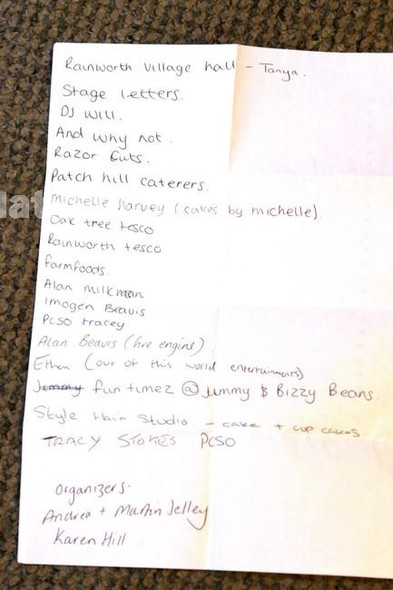 Rainworth village hall - Tanya.
Stage Letters.
DJ Will.
And why not.
Razor Cuts.
Patch hill caterers.
Michelle harvey (cakes by michelle).
Oak tree tesco
Rainworth tesco
farmfoods.
Alan milkman
imogen Beavis
PCSO tracey
Alan Beavis (fire engins)
Ethen (out of this world entertainers)
Jimmy fun timez @ Jimmy & Bizzy Beans.
Style Hair Studio - cake + cup cakes
TRACY STOKES PCSO
organizers.
Andrea + Martin Jelley
Karen Hill